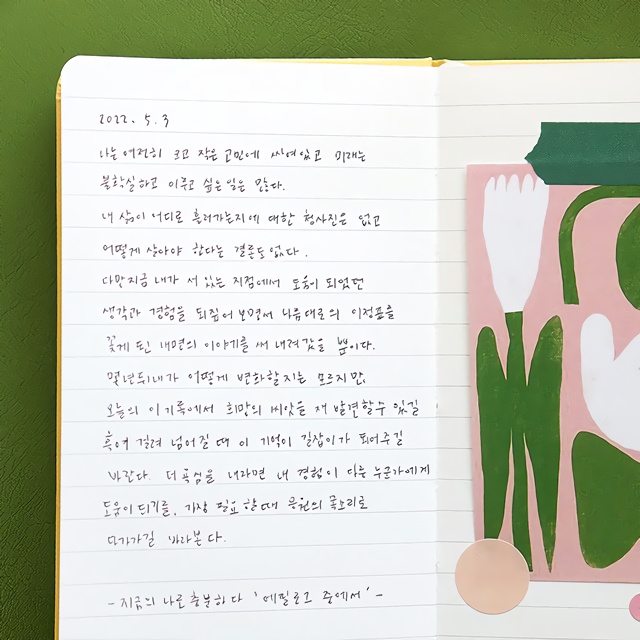 2022. 5. 3
나는 여전히 크고 작은 고민에 싸여있고 미래는
불확실하고 이루고 싶은 일은 많다.
내 삶이 어디로 흘러가는지에 대한 청사진은 없고
어떻게 살아야 한다는 결론도 없다.
다만 지금 내가 서 있는 지점에서 도움이 되었던
생각과 경험을 되짚어 보면서 나름대로의 이정표를
꽃게 된 내면의 이야기를 써 내려갔을 뿐이다.
몇년뒤 내가 어떻게 변화할지는 모르지만,
오늘의 이 기록에서 희망의 씨앗을 재 발견할 수 있길
혹여 걸려 넘어질 때 이 기억이 길잡이가 되어주길
바란다. 더 욕심을 내자면 내 경험이 다른 누군가에게
도움이 되기를, 가장 필요할 때 응원의 목소리로
다가가길 바라본다.
- 지금의 나로 충분하다 '에필로그 중에서' -